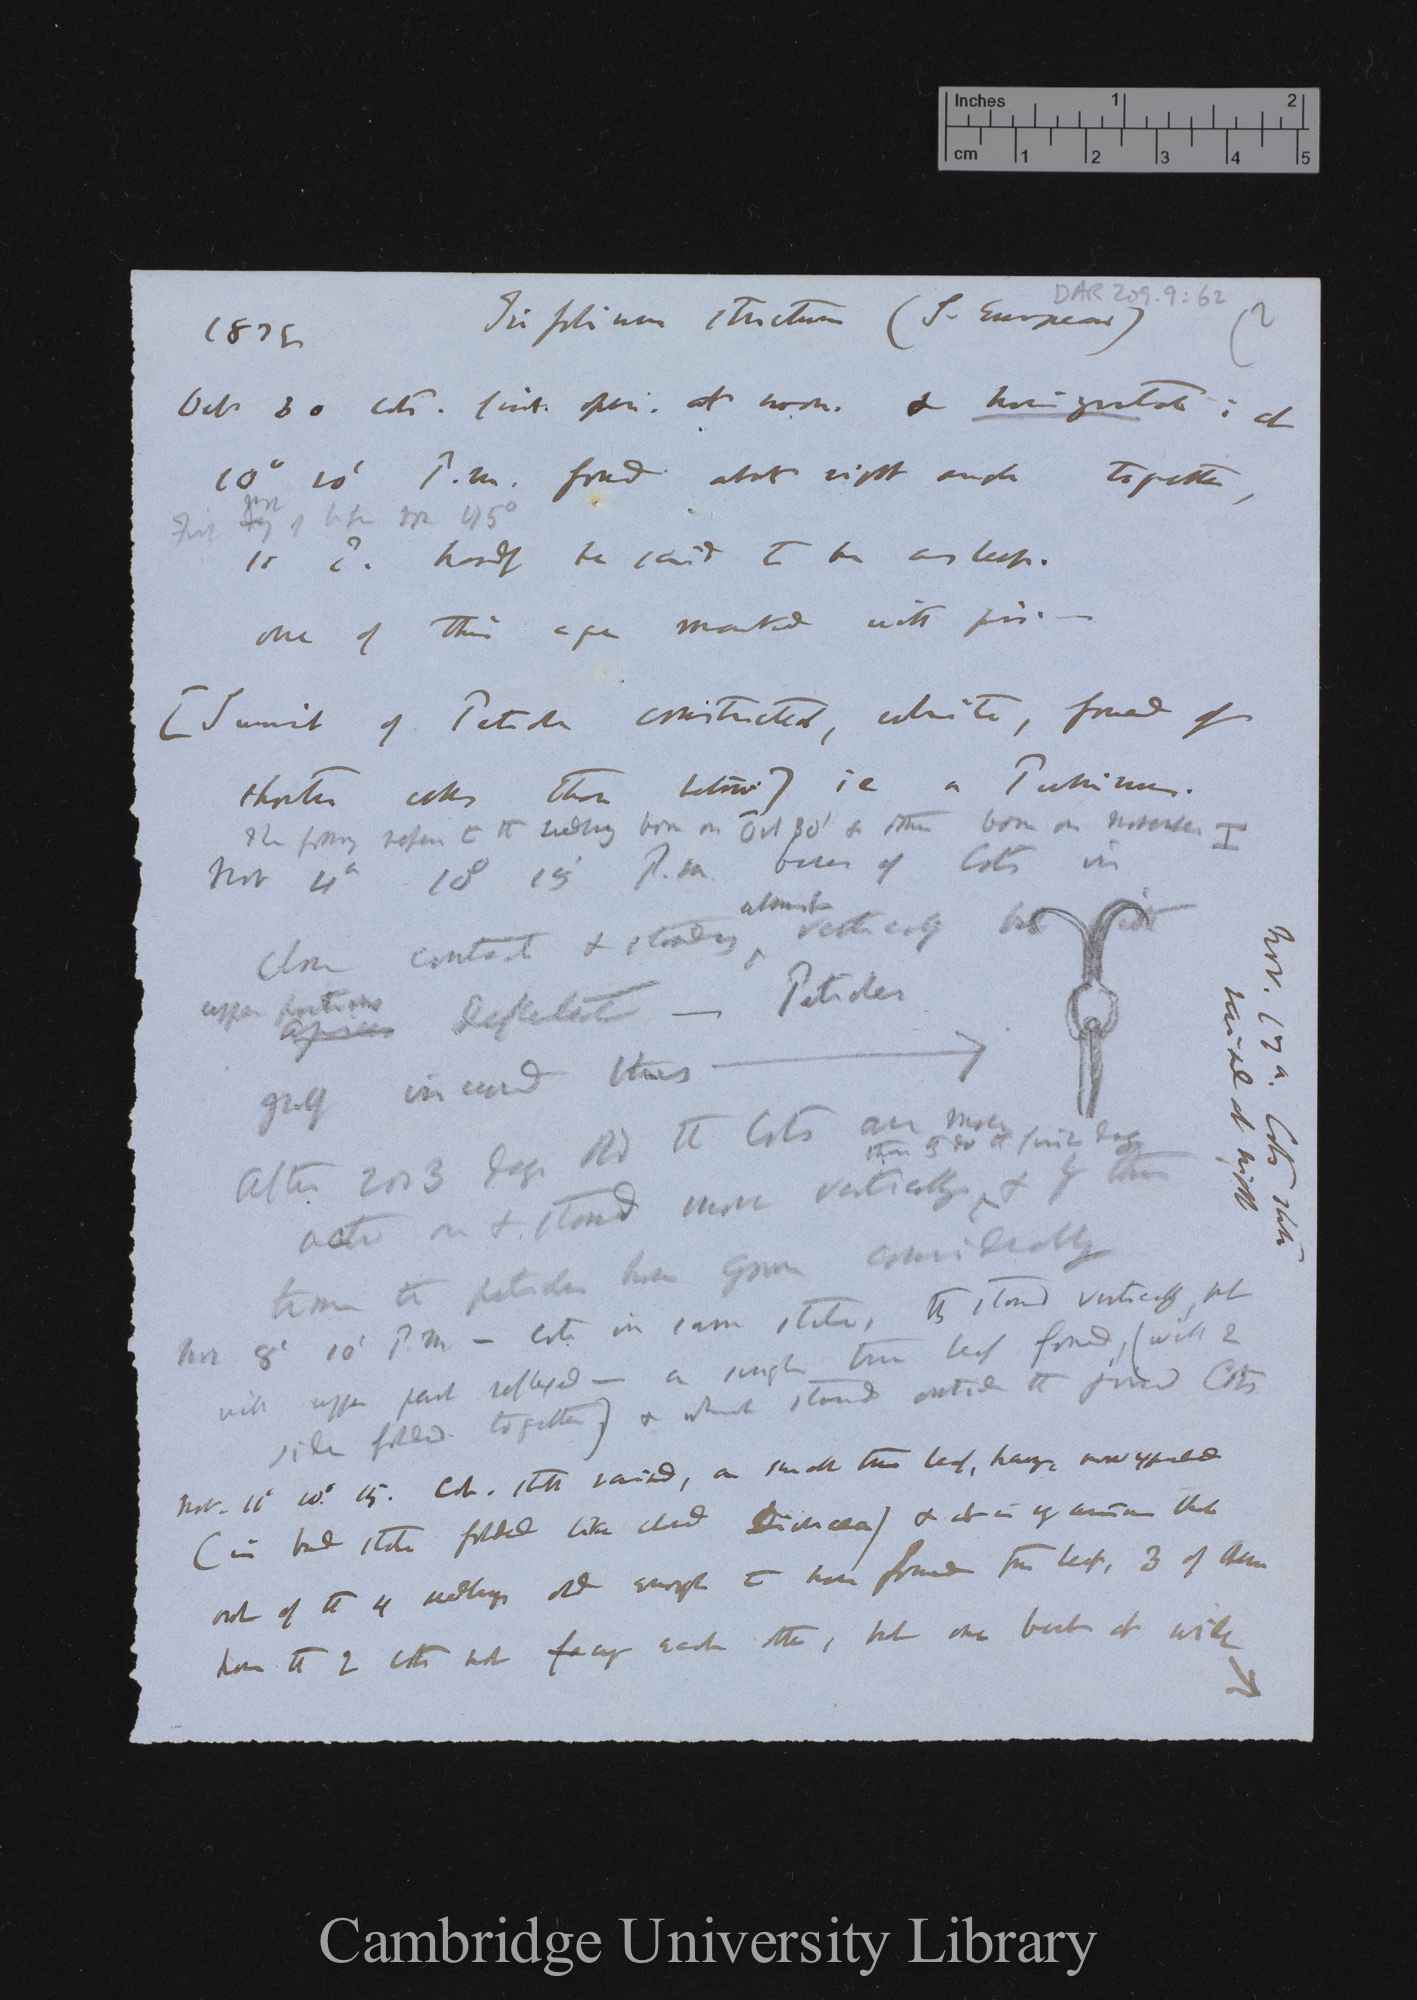 Inches 1 2
cm 1 2 3 4 5
DAR 209.9:62
1878 Trifolium strictum (S. European) (2
Oct 30 cots. first open. at noon. & horizontal; at
10° 10' P.m. formed about right angle together,
45°
hardly be said to be asleep.
one of this age marked with pin —
[Summit of Petiole constricted, white, formed of
shorter cells than below] ie a Pulvinus.
The following refers to the seedling born on Oct 30' & other born on November I
Nov 4th 10° 15' P.m. bases of Cots in
close contact & standing almost vertically but with
upper portions deflected — Petioles
greatly incurved thus
After 2 or 3 days old the Cots are more
acted on & stand more vertically, than they do the first day & by this
time the petioles have grown considerably
Nov 8' 10' P.m — cots in same state, they stand vertically, but
with upper part reflexed — a single true leaf formed, (with 2
sides folded together) & which stands outside the joined Cots
Nov. 11' 10° 15. Cots. still raised, a small true leaf, having now expanded
(in bud state folded like closed Dionaea) & it is curious that
out of the 4 seedlings old enough to have formed true leaf, 3 of them
have the 2 cots not facing each other, but one bent at side
Nov. 17th. Cots still
raised at night
Cambridge University Library